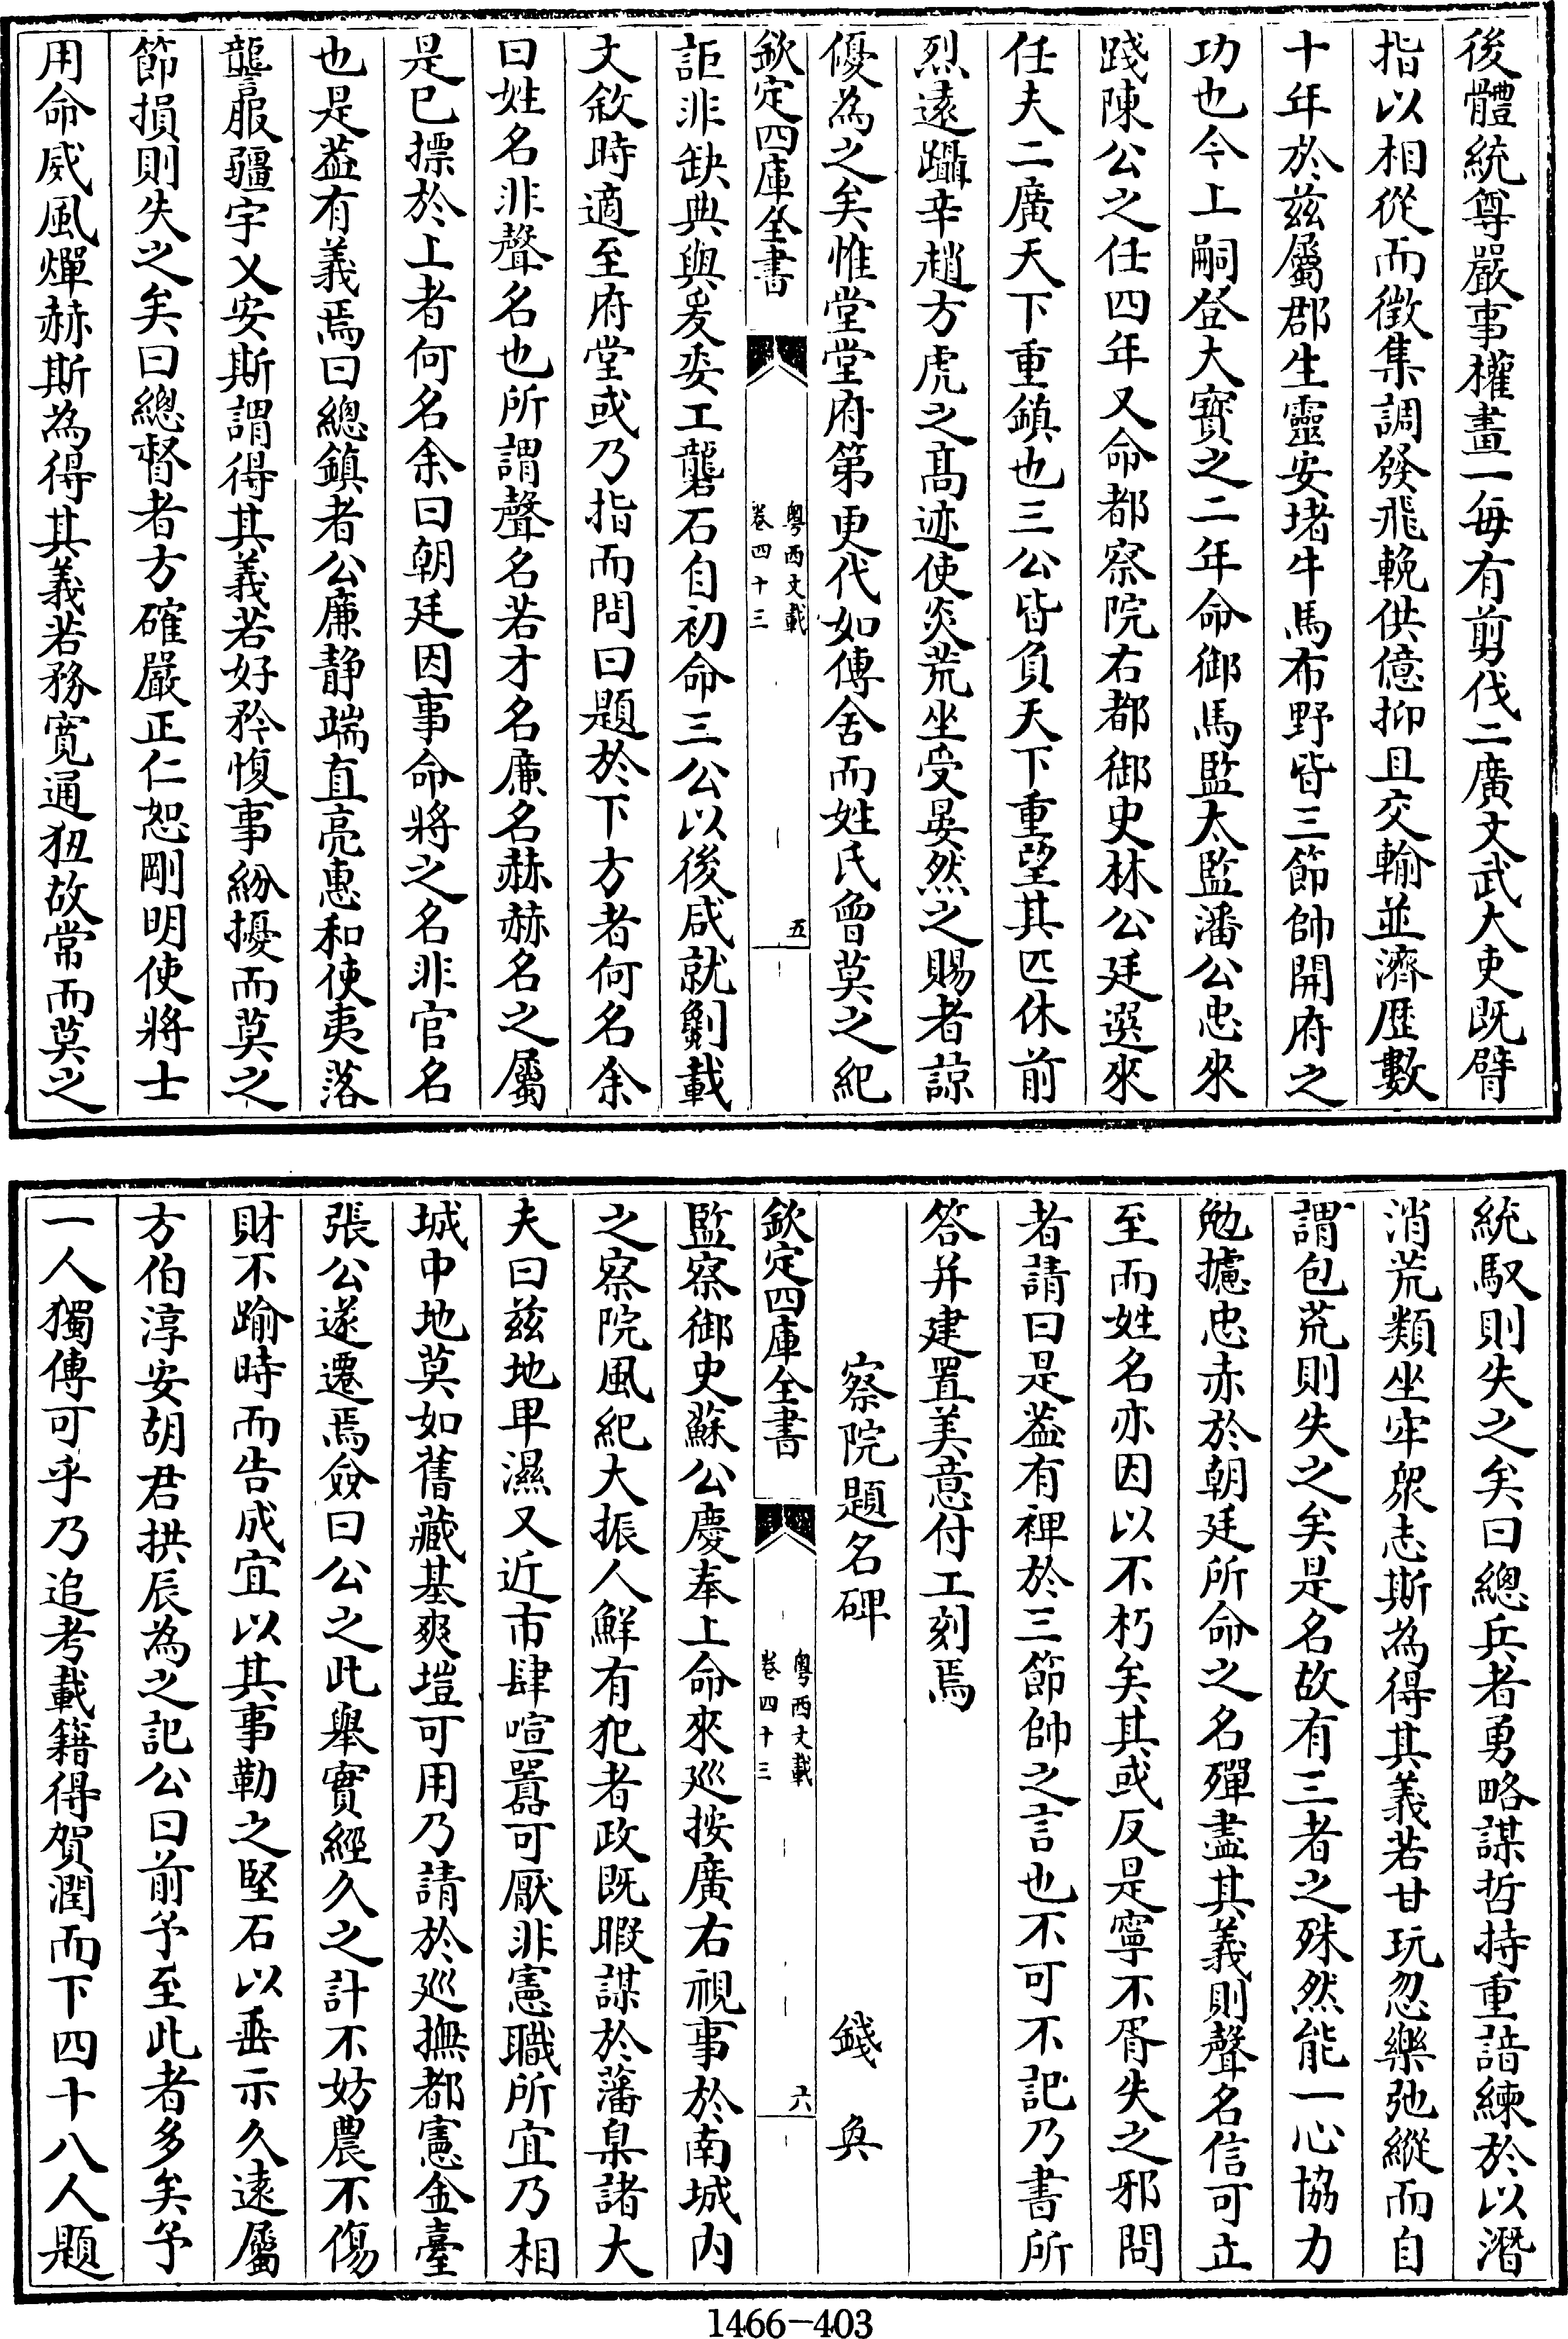 後體統尊嚴事權畫一每有剪伐二廣文武大吏既臂
指以相從而徵集調發飛輓供億抑且交輸並濟歷數
十年於兹屬郡生靈安堵牛馬布野皆三節帥開府之
功也今上嗣登大寳之二年命御馬監太監潘公忠來
踐陳公之任四年又命都察院右都御史林公廷選來
任夫二廣天下重鎮也三公皆負天下重望其匹休前
烈遠躡辛趙方虎之髙迹使炎荒坐受晏然之賜者諒
優為之矣惟堂堂府第更代如傳舍而姓氏曾莫之紀
欽定四庫全書
粤西文載
卷四十三
五
詎非缺典與爰委工礱石自初命三公以後咸就劖載
文敘時適至府堂或乃指而問曰題於下方者何名余
曰姓名非聲名也所謂聲名若才名廉名赫赫名之屬
是已摽於上者何名余曰朝廷因事命將之名非官名
也是葢有義焉曰總鎮者公廉静端直亮惠和使夷落
讋服疆宇乂安斯謂得其義若好矜愎事紛擾而莫之
節損則失之矣曰總督者方確嚴正仁恕剛明使將士
用命威風燀赫斯為得其義若務寛通狃故常而莫之
統馭則失之矣曰總兵者勇略謀哲持重諳練於以潛
消荒類坐牢衆志斯為得其義若甘玩忽樂弛縱而自
謂包荒則失之矣是名故有三者之殊然能一心協力
勉攄忠赤於朝廷所命之名殫盡其義則聲名信可立
至而姓名亦因以不朽矣其或反是寧不胥失之邪問
者請曰是葢有裨於三節帥之言也不可不記乃書所
答并建置美意付工刻焉
察院題名碑
錢奐
欽定四庫全書
粤西文載
卷四十三
六
監察御史蘇公慶奉上命來廵按廣右視事於南城内
之察院風紀大振人鮮有犯者政既暇謀於藩臬諸大
夫曰兹地卑濕又近市肆喧嚚可厭非憲職所宜乃相
城中地莫如舊藏基爽塏可用乃請於廵撫都憲金臺
張公遂遷焉僉曰公之此舉實經久之計不妨農不傷
財不踰時而告成宜以其事勒之堅石以垂示久遠屬
方伯淳安胡君拱辰為之記公曰前予至此者多矣予
一人獨傳可乎乃追考載籍得賀潤而下四十八人題
1466-403